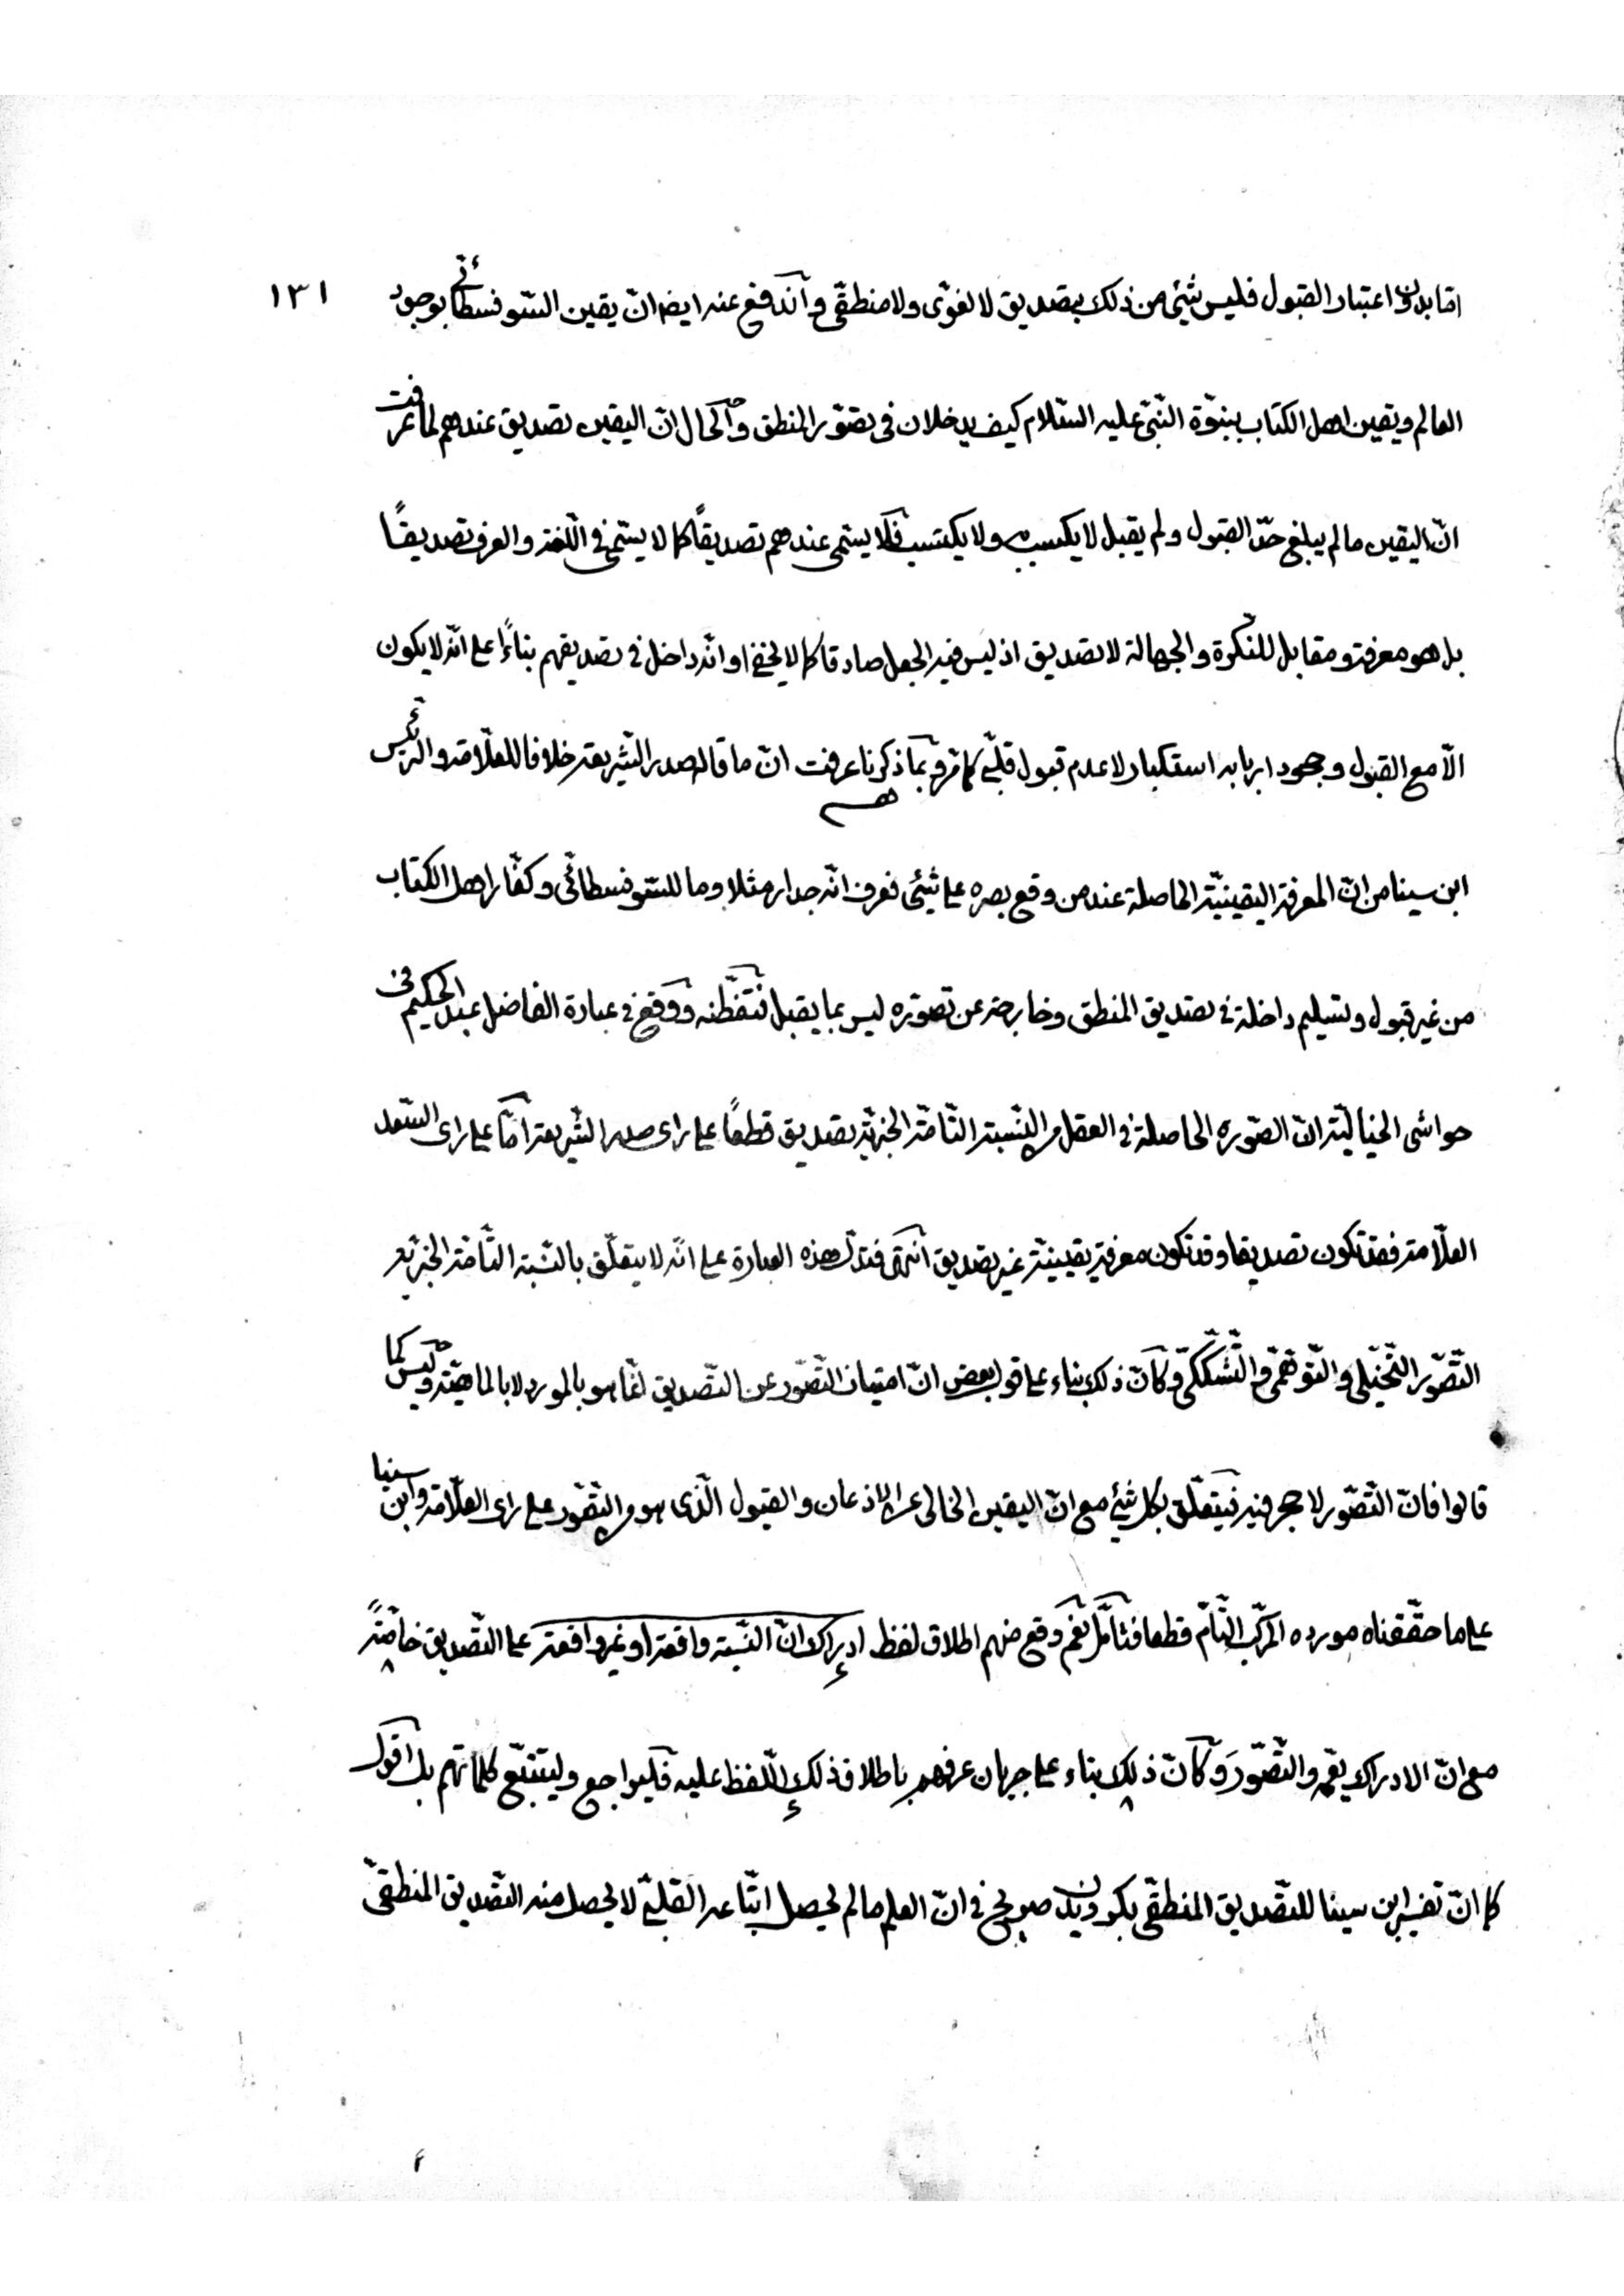 امّا بدون اعتبار القبول فليس شيئ من ذلك بتصديق لا لغوىّ ولا منطقىّ وآندفع عنه ايضا انّ يقين السّوفسطائىّ بوجود ١٣١
العالم ويقين اهل الكتاب بنبوّة النّبىّ عليه السّلام كيف يدخلان فى تصوّر المنطق وآلحال انّ اليقين تصديق عندهم لما عرفت
انّ اليقين مالم يبلغ حدّ القبول ولم يقبل لا يكسب ولا يكتسب فلا يسمّى عندهم تصديقًا كما لا يسمّى فى اللّغة والعرف تصديقًا
بل هو معرفة ومقابل للنّكرة والجهالة لا تصديق اذ ليس فيه الجعل صادقا كما لا يخفى او انّه داخل فى تصديقهم بناءً على انّه لا يكون
الّا مع القبول وجحود اربابه استكبار لا عدم قبول قلبىّ كما مرّ وبما ذكرنا عرفت انّ ما قاله صدر الشّريعة خلافا للعلّامة والرّئيس
ابن سينا من انّ المعرفة اليقينيّة الحاصلة عند من وقع بصره على شيئ فعرف انّه جدار مثلا وما للسّوفسطائىّ وكفّار اهل الكتاب
من غير قبول وتسليم داخلة فى تصديق المنطق وخارجة عن تصوّره ليس بما يقبل فتفطّنه ووقع فى عبارة الفاضل عبد الحكيم فى
حواشى الخياليّة انّ الصّورة الحاصلة فى العقل من النّسبة التّامّة الخبريّة تصديق قطعًا على راى صدر الشّريعة امّا على راى السّعد
العلّامة فقد تكون تصديقا وقد تكون معرفة يقينيّة غير تصديق انتهى فتدلّ هذه العبارة على انّه لا يتعلّق بالنّسبة التّامّة الخبريّة
التّصوّر التّخيّلى والتّوهّمى والتّشكّكىّ وكانّ ذلك بناء على قول بعض انّ امتياز التّصوّر عن التّصديق انّما هو بالمورد لا بالماهيّة وليس كما
قالوا فانّ التّصوّر لا حجر فيه فيتعلّق بكلّ شيئ مع انّ اليقين الخالى عن الاذعان والقبول الّذى هو من التّصوّر على راى العلّامة وابن سينا
على ما حقّقناه مورده المركّب التّامّ قطعا فتامّل نعم وقع منهم اطلاق لفظ ادراك انّ النّسبة واقعة او غير واقعة على التّصديق خاصّةً
مع انّ الادراك يعمّه والتّصوّرَ وكانّ ذلك بناء على جريان عرفهم باطلاق ذلك اللّفظ عليه فليراجع وليتتبّع كلماتهم بل اقول
كما انّ تفسير ابن سينا للتّصديق المنطقىّ بكرويدن صريح فى انّ العلم مالم يحصل القلبىّ لا يحصل منه التّصديق المنطقىّ